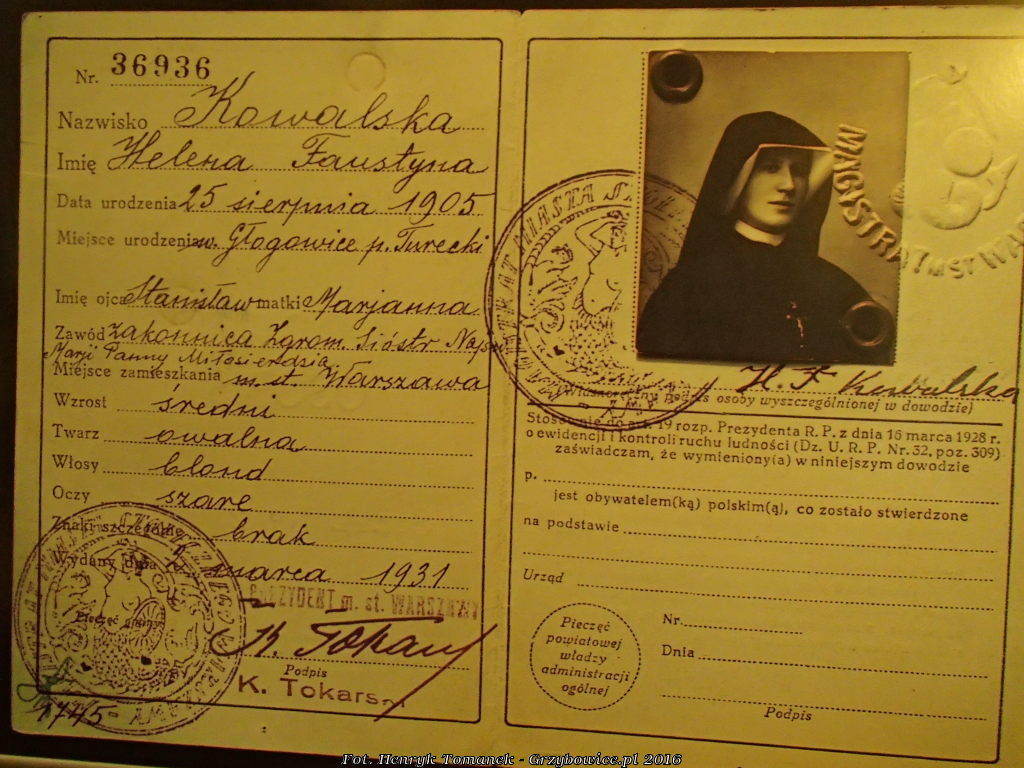 Nr. 36936
Nazwisko Kowalska
Imię Helena Faustyna
Data urodzenia 25 sierpnia 1905
Miejsce urodzenia w. Głogowice p. Turecki
Imię ojca Stanisław matki Marjanna
Zawód zakonnica Zgrom. Sióstr Najśw.
Marji Panny Miłosierdzia
Miejsce zamieszkania m. st. Warszawa
Wzrost średni
Twarz owalna
Włosy blond
Oczy szare
Znaki szczególne brak
Wydany dnia marca 1931
Pieczęć gminy
PREZYDENT m. st. WARSZAWY
K. Tokars
Podpis
K. Tokars
MAGISTRAT M ST WAR
H. F Kowalska
(Własnoręczny podpis osoby wyszczególnionej w dowodzie)
Stosownie do art. 19 rozp. Prezydenta R. P. z dnia 16 marca 1928 r.
o ewidencji i kontroli ruchu ludności (Dz. U. R. P. Nr. 32, poz. 309)
zaświadczam, że wymieniony(a) w niniejszym dowodzie
p.
jest obywatelem(ką) polskim(ą), co zostało stwierdzone
na podstawie
Urząd
Pieczęć
powiatowej
władzy
administracji
ogólnej
Nr.
Dnia
Podpis
Fot. Henryk Tomanek - Grzybowice.pl 2016